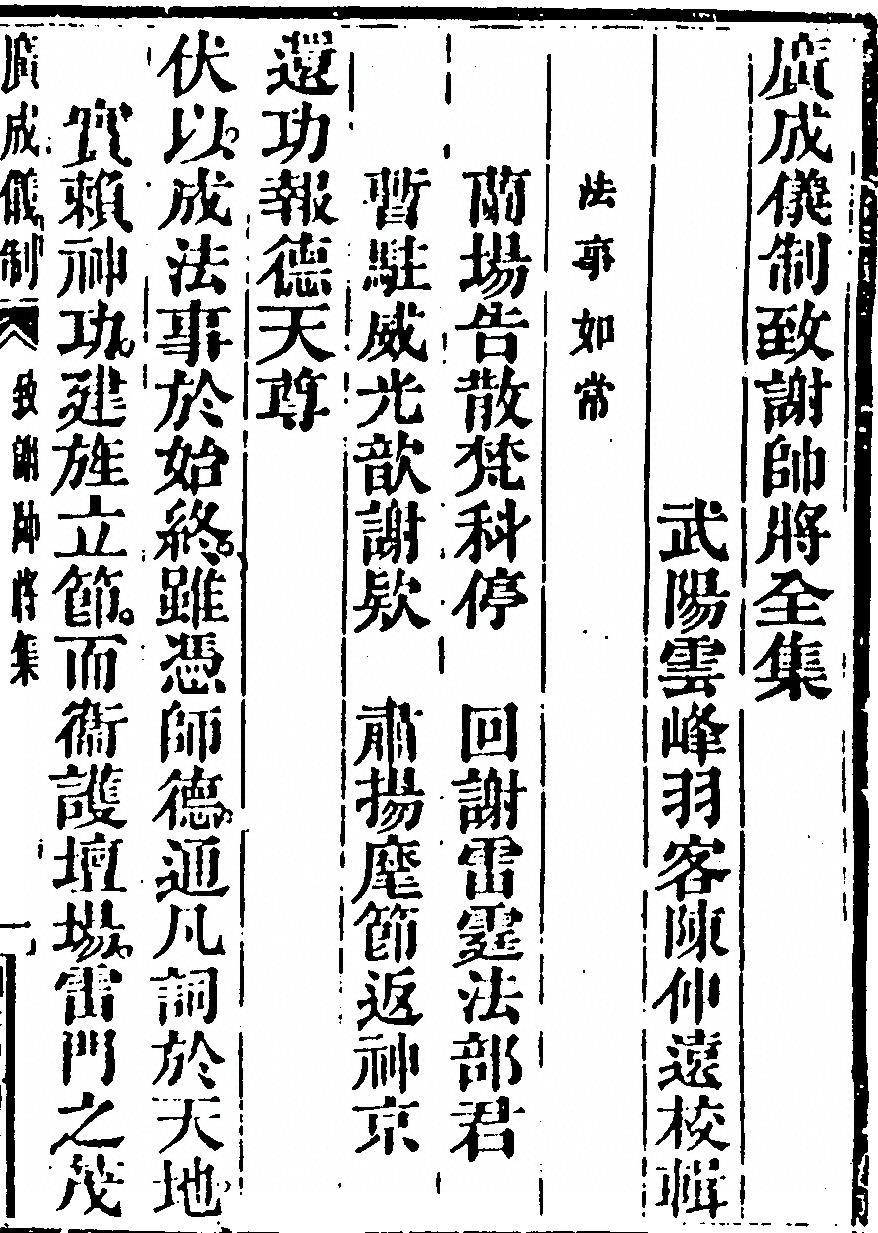 廣成儀制致謝帥將全集
武陽雲峰羽客陳仲遠校輯
法事如常
蘭場告散梵科停　回謝雷霆法部君
暫駐威光歆謝欵　肅揚麾節返神京
還功報德天尊
伏以成法事於始終雖憑師德通凡詞於天地
寔賴神功建旌立節而衞護壇場雷門之茂
廣成儀制　致謝帥將集　一